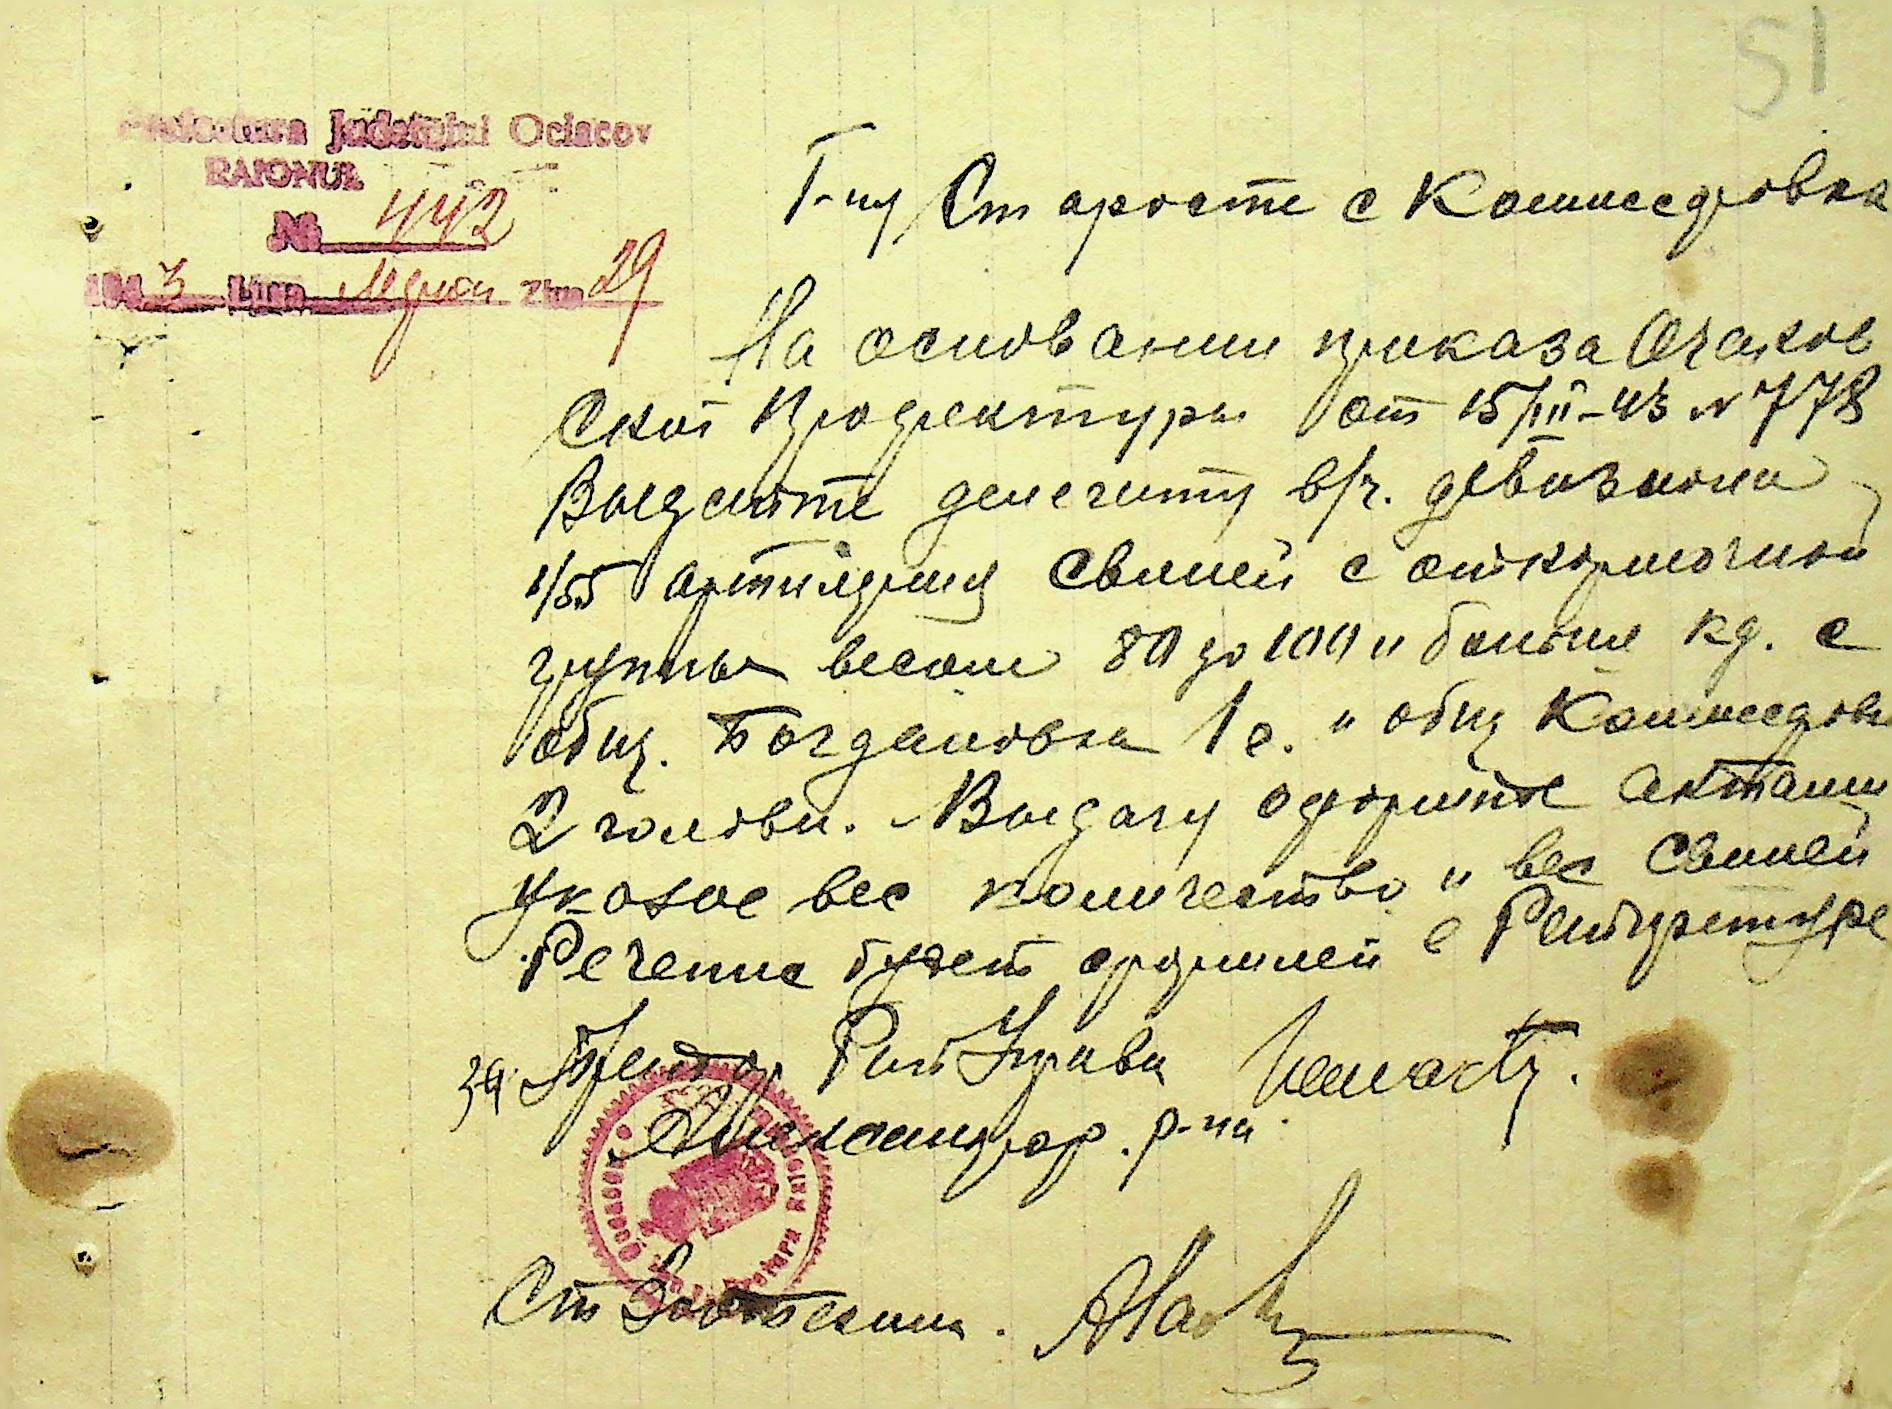 51
Prefectura Județului Ociacov
RAIONUL
№ 442
1943 Luna Ziua 29
Г-ну Старосте с Комиссаровка
На основании приказа Очаков
ской префектуры от 15/III-43 № 778
Выдайте в/ч. дивизиона
1/55 артилерия свиней с откормочной
группы весом 80 до 100 и больше кг. с
общ. Богдановка 1 г. и общ Комиссаровк
2 головы. Выдачу оформите актами
указов вес количество и вес свиней
будет в
За Претор Рай Управы
Александр. р-на
Ст Зоотехник.